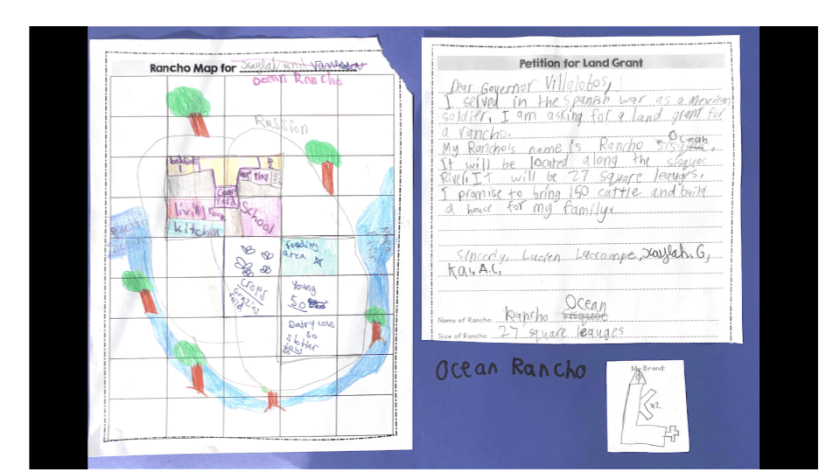 Rancho Map for Xaylah and
Ocean Rancho
Russian
School
living room
kitchen
feeding
area
crops
Young
50
Dairy cows
50
Petition for Land Grant
Dear Governor Villalobos,
I served in the Spanish war as a Mexican
soldier, I am asking for a land grant for
a rancho.
My Rancho's name is Rancho Ocean.
It will be located along the sisquoc
River. It will be 27 square leauges.
I promise to bring 150 cattle and build
a house for my family.
Sincerly, Lucien Lacrampe, Xaylah. G,
Kai, A.C,
Name of Rancho: Rancho Ocean
Size of Rancho: 27 square leauges
Ocean Rancho
My Brand:
x2